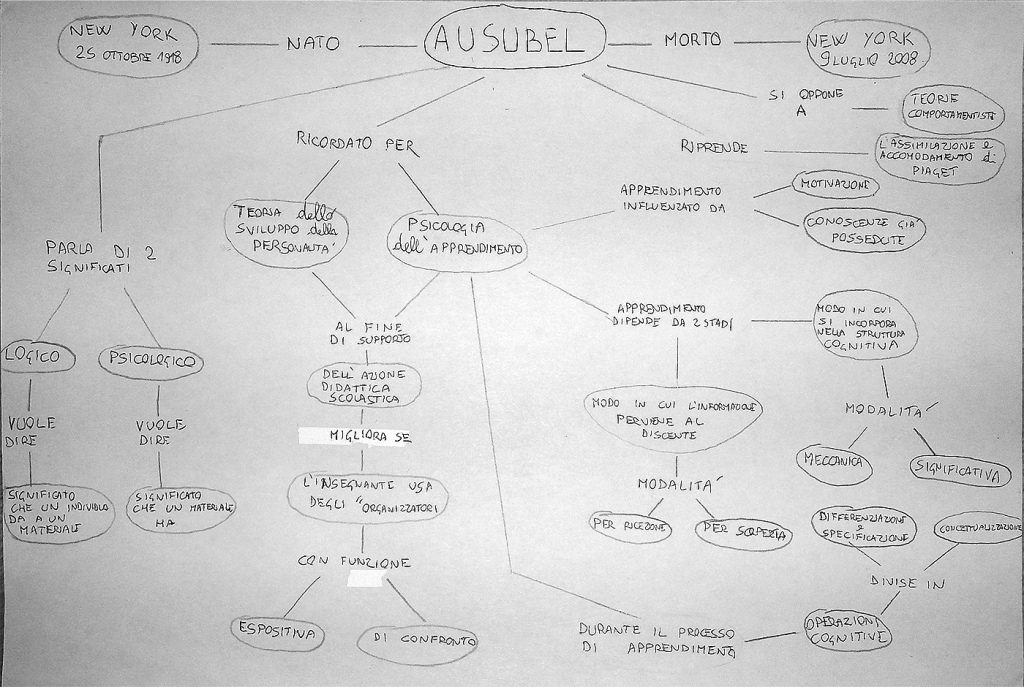 NEW YORK
25 OTTOBRE 1918
NATO
AUSUBEL
MORTO
NEW YORK
9 LUGLIO 2008
SI OPPONE
A
TEORIE
COMPORTAMENTISTE
RIPRENDE
L'ASSIMILAZIONE e
ACCOMODAMENTO di
PIAGET
RICORDATO PER
TEORIA dello
SVILUPPO della
PERSONALITA'
PSICOLOGIA
dell'APPRENDIMENTO
APPRENDIMENTO
INFLUENZATO DA
MOTIVAZIONE
CONOSCENZE GIA'
POSSEDUTE
PARLA DI 2
SIGNIFICATI
LOGICO
PSICOLOGICO
VUOLE
DIRE
VUOLE
DIRE
SIGNIFICATO
CHE UN INDIVIDUO
DA A UN
MATERIALE
SIGNIFICATO
CHE UN MATERIALE
HA
AL FINE
DI SUPPORTO
DELL'AZIONE
DIDATTICA
SCOLASTICA
MIGLIORA SE
L'INSEGNANTE USA
DEGLI "ORGANIZZATORI
CON FUNZIONE
ESPOSITIVA
DI CONFRONTO
APPRENDIMENTO
DIPENDE DA 2 STADI
MODO IN CUI
SI INCORPORA
NELLA STRUTTURA
COGNITIVA
MODO IN CUI L'INFORMAZIONE
PERVIENE AL
DISCENTE
MODALITA'
PER RICEZIONE
PER SCOPERTA
MODALITA'
MECCANICA
SIGNIFICATIVA
DIFFERENZIAZIONE
e
SPECIFICAZIONE
CONCETTUALIZZAZIONE
DIVISE IN
OPERAZIONI
COGNITIVE
DURANTE IL PROCESSO
DI APPRENDIMENTO